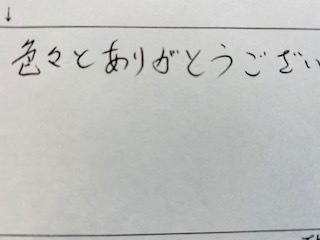 ↓
色々とありがとうござい